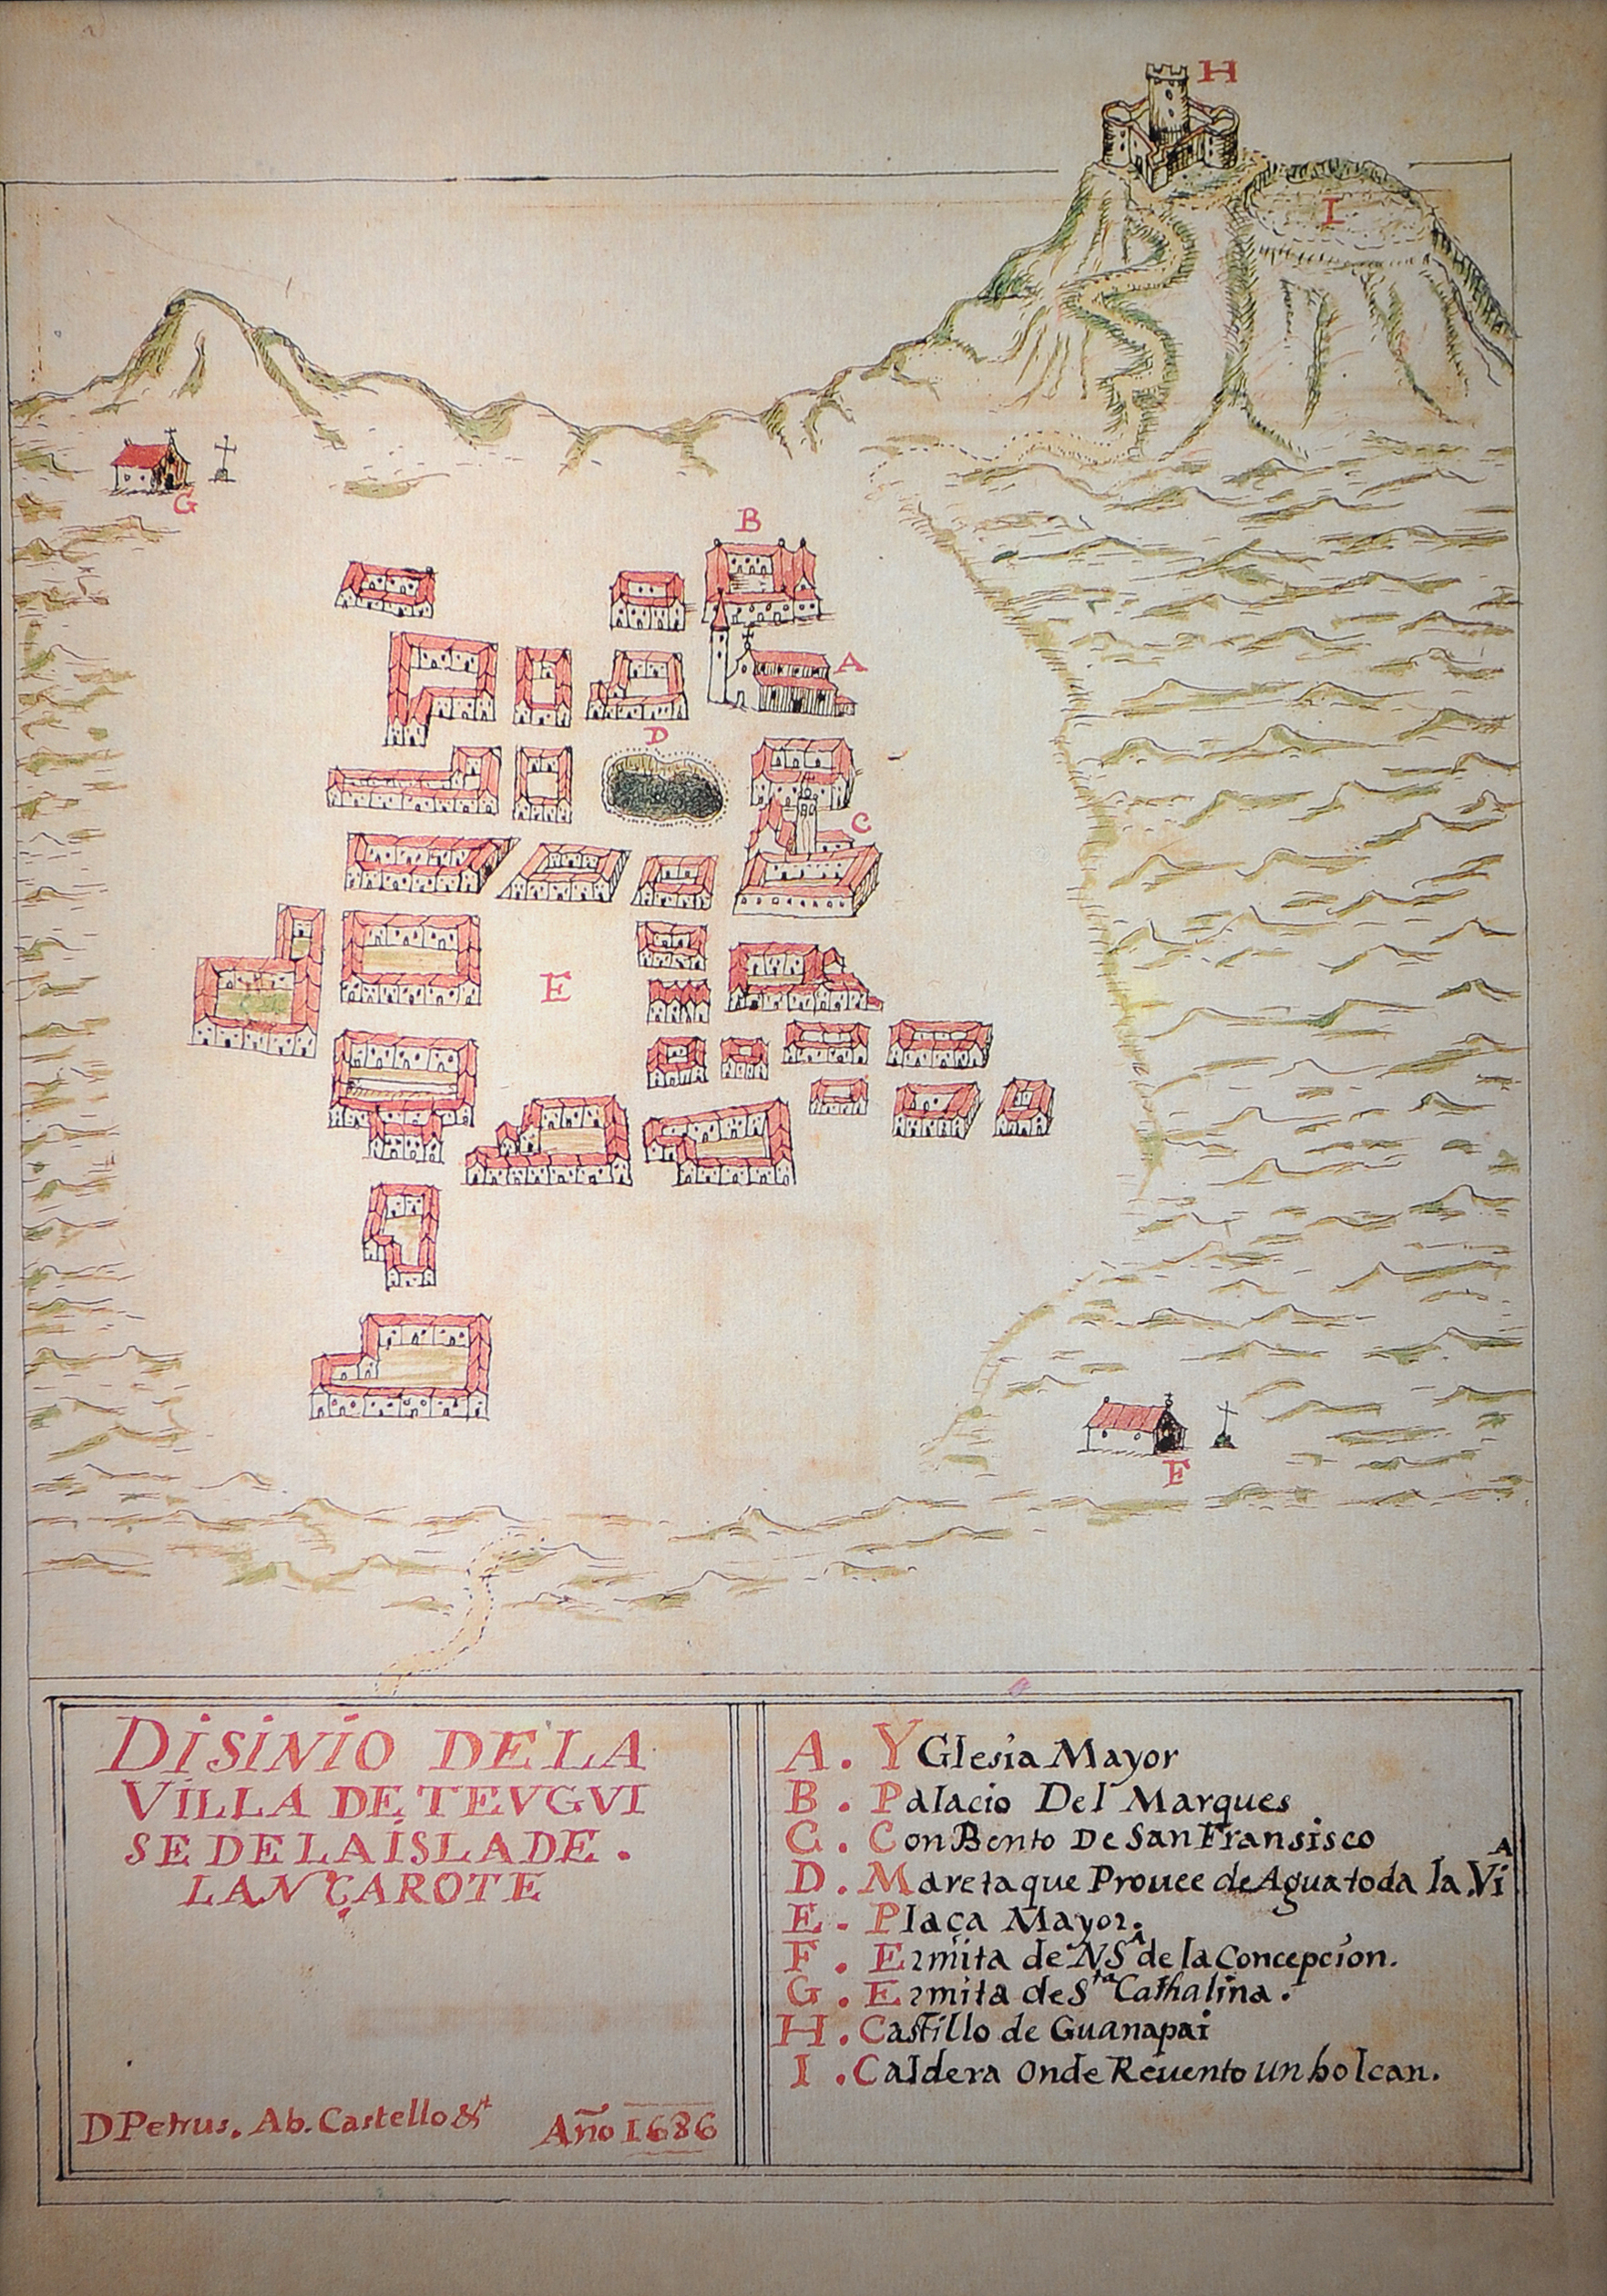 H
I
G
B
A
D
C
E
F
DISINIO DE LA
VILLA DE TEVGVI
SE DE LA ISLA DE.
LANÇAROTE
D Petrus. Ab. Castello &t
Año 1686
A. YGlesia Mayor
B. Palacio Del Marques
C. ConBento De San Fransisco
D. Mareta que Prouee de Agua toda la ViA
E. Plaça Mayor.
F. Ermita de NSA de la Concepcion.
G. Ermita de Sta Cathalina.
H. Castillo de Guanapai
I. Caldera onde Reuento un bolcan.